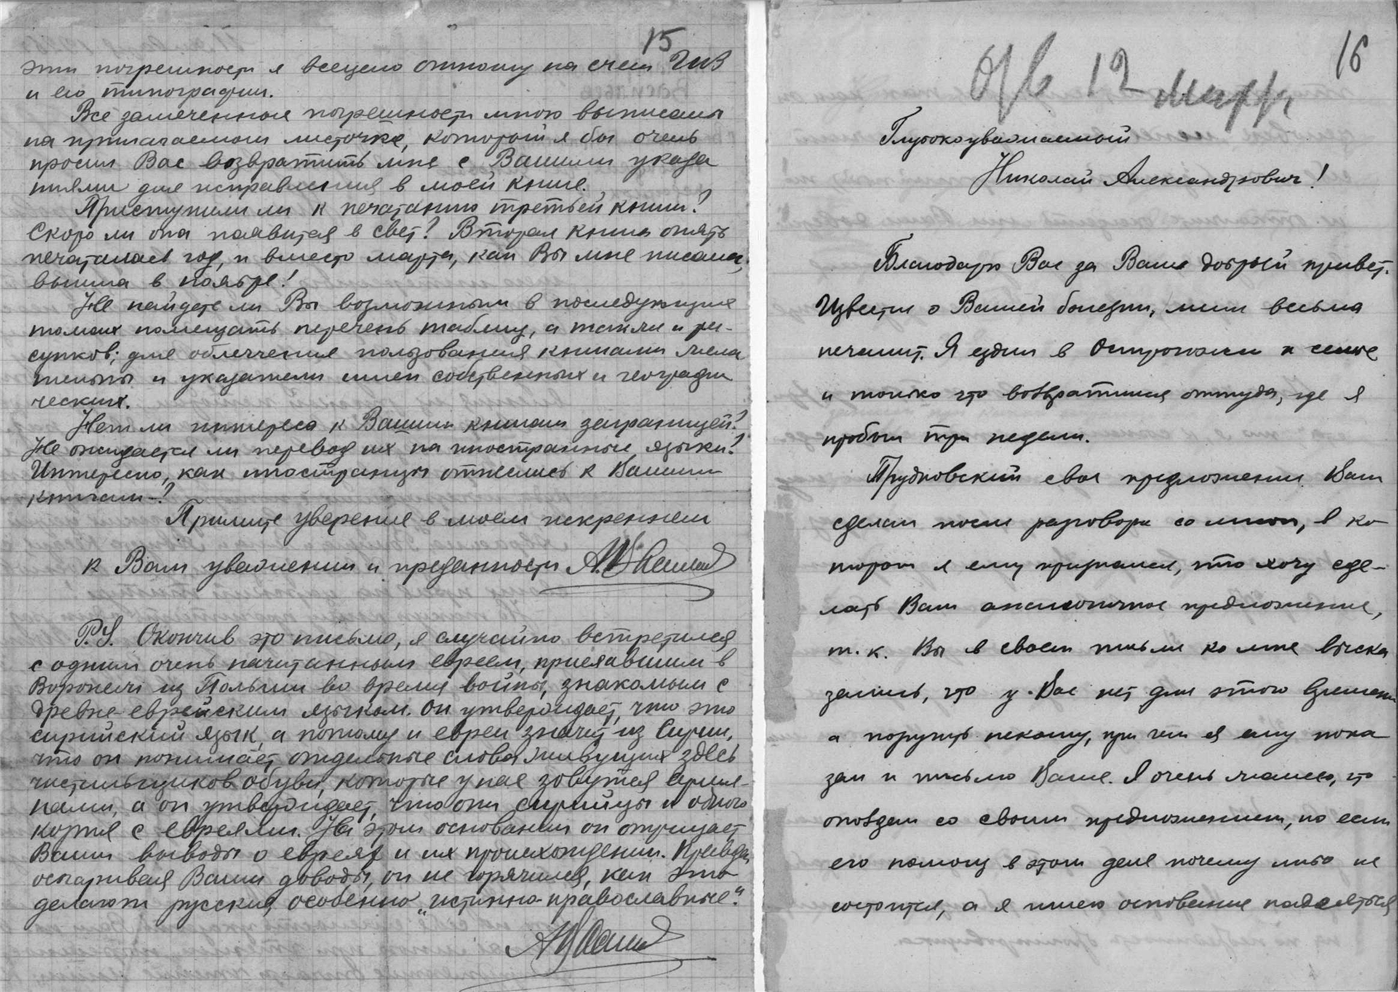 15
эти погрешности я всецело отношу на счет ГИЗ
и его типографии.
Все замеченные погрешности мною выписаны
на прилагаемом листочке, который я бы очень
просил Вас возвратить мне с Вашими указа
ниями для исправления в моей книге.
Приступили ли к печатанию третьей книги?
Скоро ли она появится в свет? Вторая книга опять
печаталась год, и вместо марта, как Вы мне писали,
вышла в ноябре!
Не найдете ли Вы возможным в последующих
томах помещать перечень таблиц, а также и ри-
сунков; для облегчения пользования книгами жела
тельны и указатели имен собственных и географи
ческих.
Нет ли интереса к Вашим книгам заграницей?
Не ожидается ли перевод их на иностранные языки?
Интересно, как иностранцы отнеслись к Вашим
книгам-?
Примите уверения в моем искреннем
к Вам уважении и преданности
P.S. Окончив это письмо, я случайно встретился
с одним очень начитанным евреем, приехавшим в
Воронеж из Польши во время войны, знакомым с
древне еврейским языком. Он утверждает, что это
сирийский язык, а потому и евреи значит из Сирии,
что он понимает отдельные слова живущих здесь
чистильщиков обуви, которые у нас зовутся армя-
нами, а он утверждает, что они сирийцы и одного
корня с евреями. На этом основании он отрицает
Ваши выводы о евреях и их происхождении. Правда,
оспаривая Ваши доводы, он не горячился, как это
делают русские, особенно "истинно-православные".
16
Отв 12 марта
Глубокоуважаемый
Николай Александрович!
Благодарю Вас за Ваш добрый привет.
Известия о Вашей болезни, меня весьма
печалит. Я ездил в Острогожск к семье
и только что возвратился оттуда, где я
пробыл три недели.
Трудковский свое предложение Вам
сделал после разговора со мной, в ко
тором я ему признался, что хочу сде-
лать Вам аналогичное предложение,
т. к. Вы в своем письме ко мне выска
зались, что у Вас нет для этого времени
а поручить некому, при чем я ему пока
зал и письмо Ваше. Я очень жалею, что
опоздал со своим предложением, но если
его помощь в этом деле почему либо не
состоится, а я имею основание надеяться